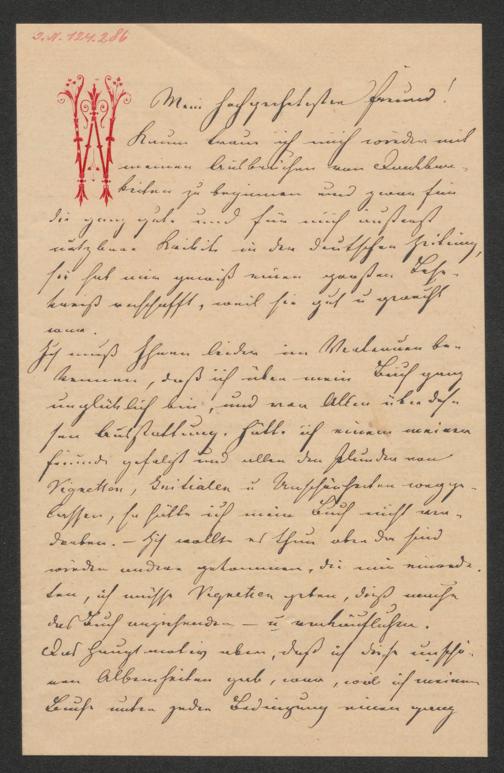 J.N. 124.286
Mein hochgeehrtester Freund!
Kaum traue ich mich wieder mit
meinen Ausbrüchen von Dankbar-
keiten zu beginnen und zwar für
die ganz gute und für mich äußerst
nützbare Kritik in der deutschen Zeitung,
sie hat mir gewiß einen großen Lese-
kreiß verschafft, weil sie gut u gerecht
war.
Ich muß Ihnen leider im Vertrauen be-
kennen, daß ich über mein Buch ganz
unglücklich bin, und vor Allem über des-
sen Ausstattung. Hätte ich einem meiner
Freunde gefolgt und allen den Plunder von
Vignetten, Initialen u Unschönheiten wegge-
lassen, so hätte ich mein Buch nicht ver-
dorben. – Ich wollte es thun aber da sind
wieder andere gekommen, die mir einrede-
ten, ich müsse Vignetten geben, dieß mache
das Buch anziehender – u verkäuflicher.
Das Hauptmotiv aber, daß ich diese unschö-
nen Albernheiten gab, war, weil ich meinem
Buche unter jeder Bedingung einen ganz